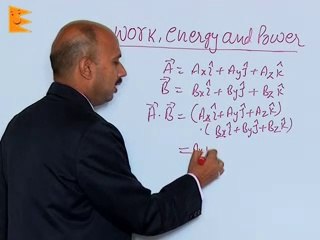 Work, Energy and Power
A⃗ = Axî + Ayĵ + Azk̂
B⃗ = Bxî + Byĵ + Bzk̂
A⃗ · B⃗ = (Axî + Ayĵ + Azk̂)
· (Bxî + Byĵ + Bzk̂)
=